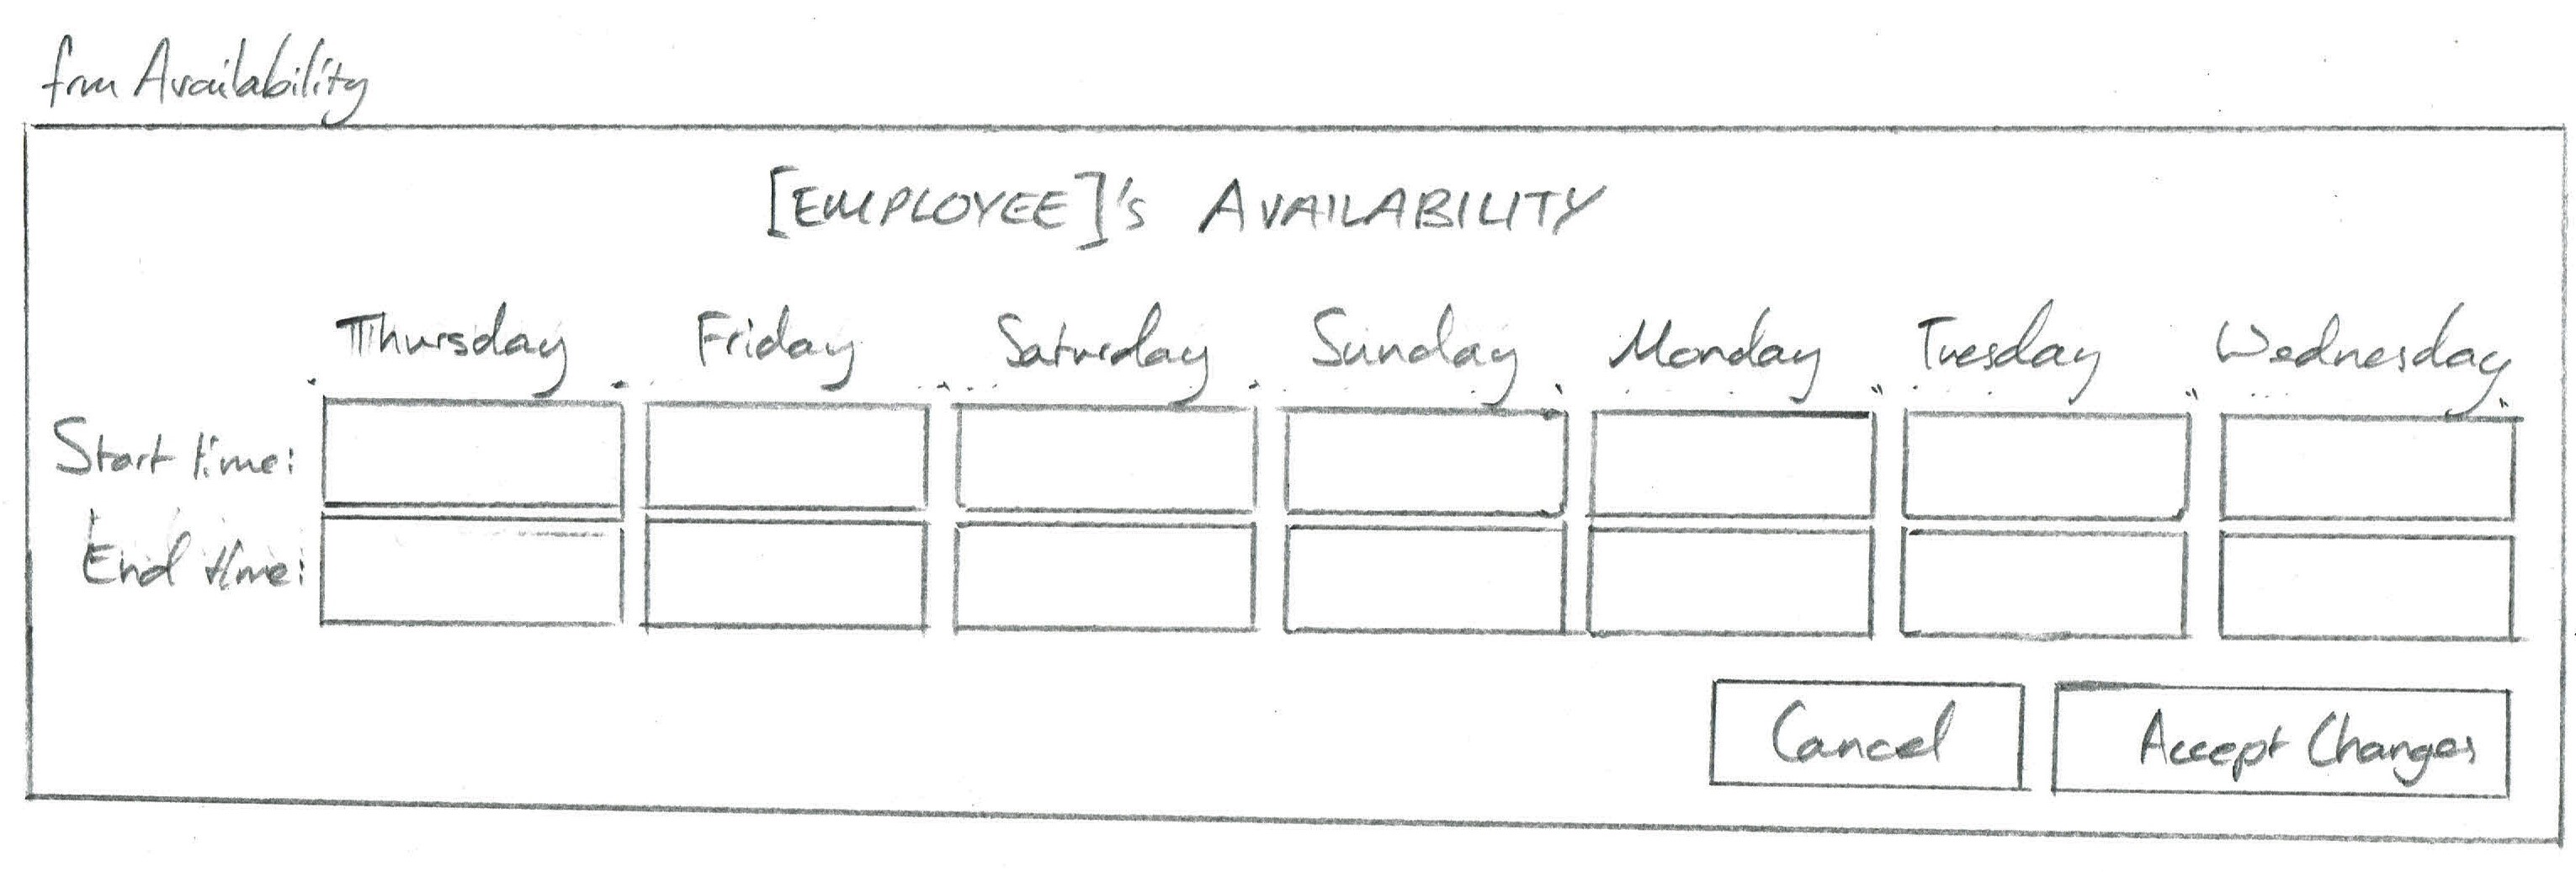 frm Availability
[EMPLOYEE]'s AVAILABILITY
Thursday Friday Saturday Sunday Monday Tuesday Wednesday
Start time:
End time:
Cancel Accept Changes